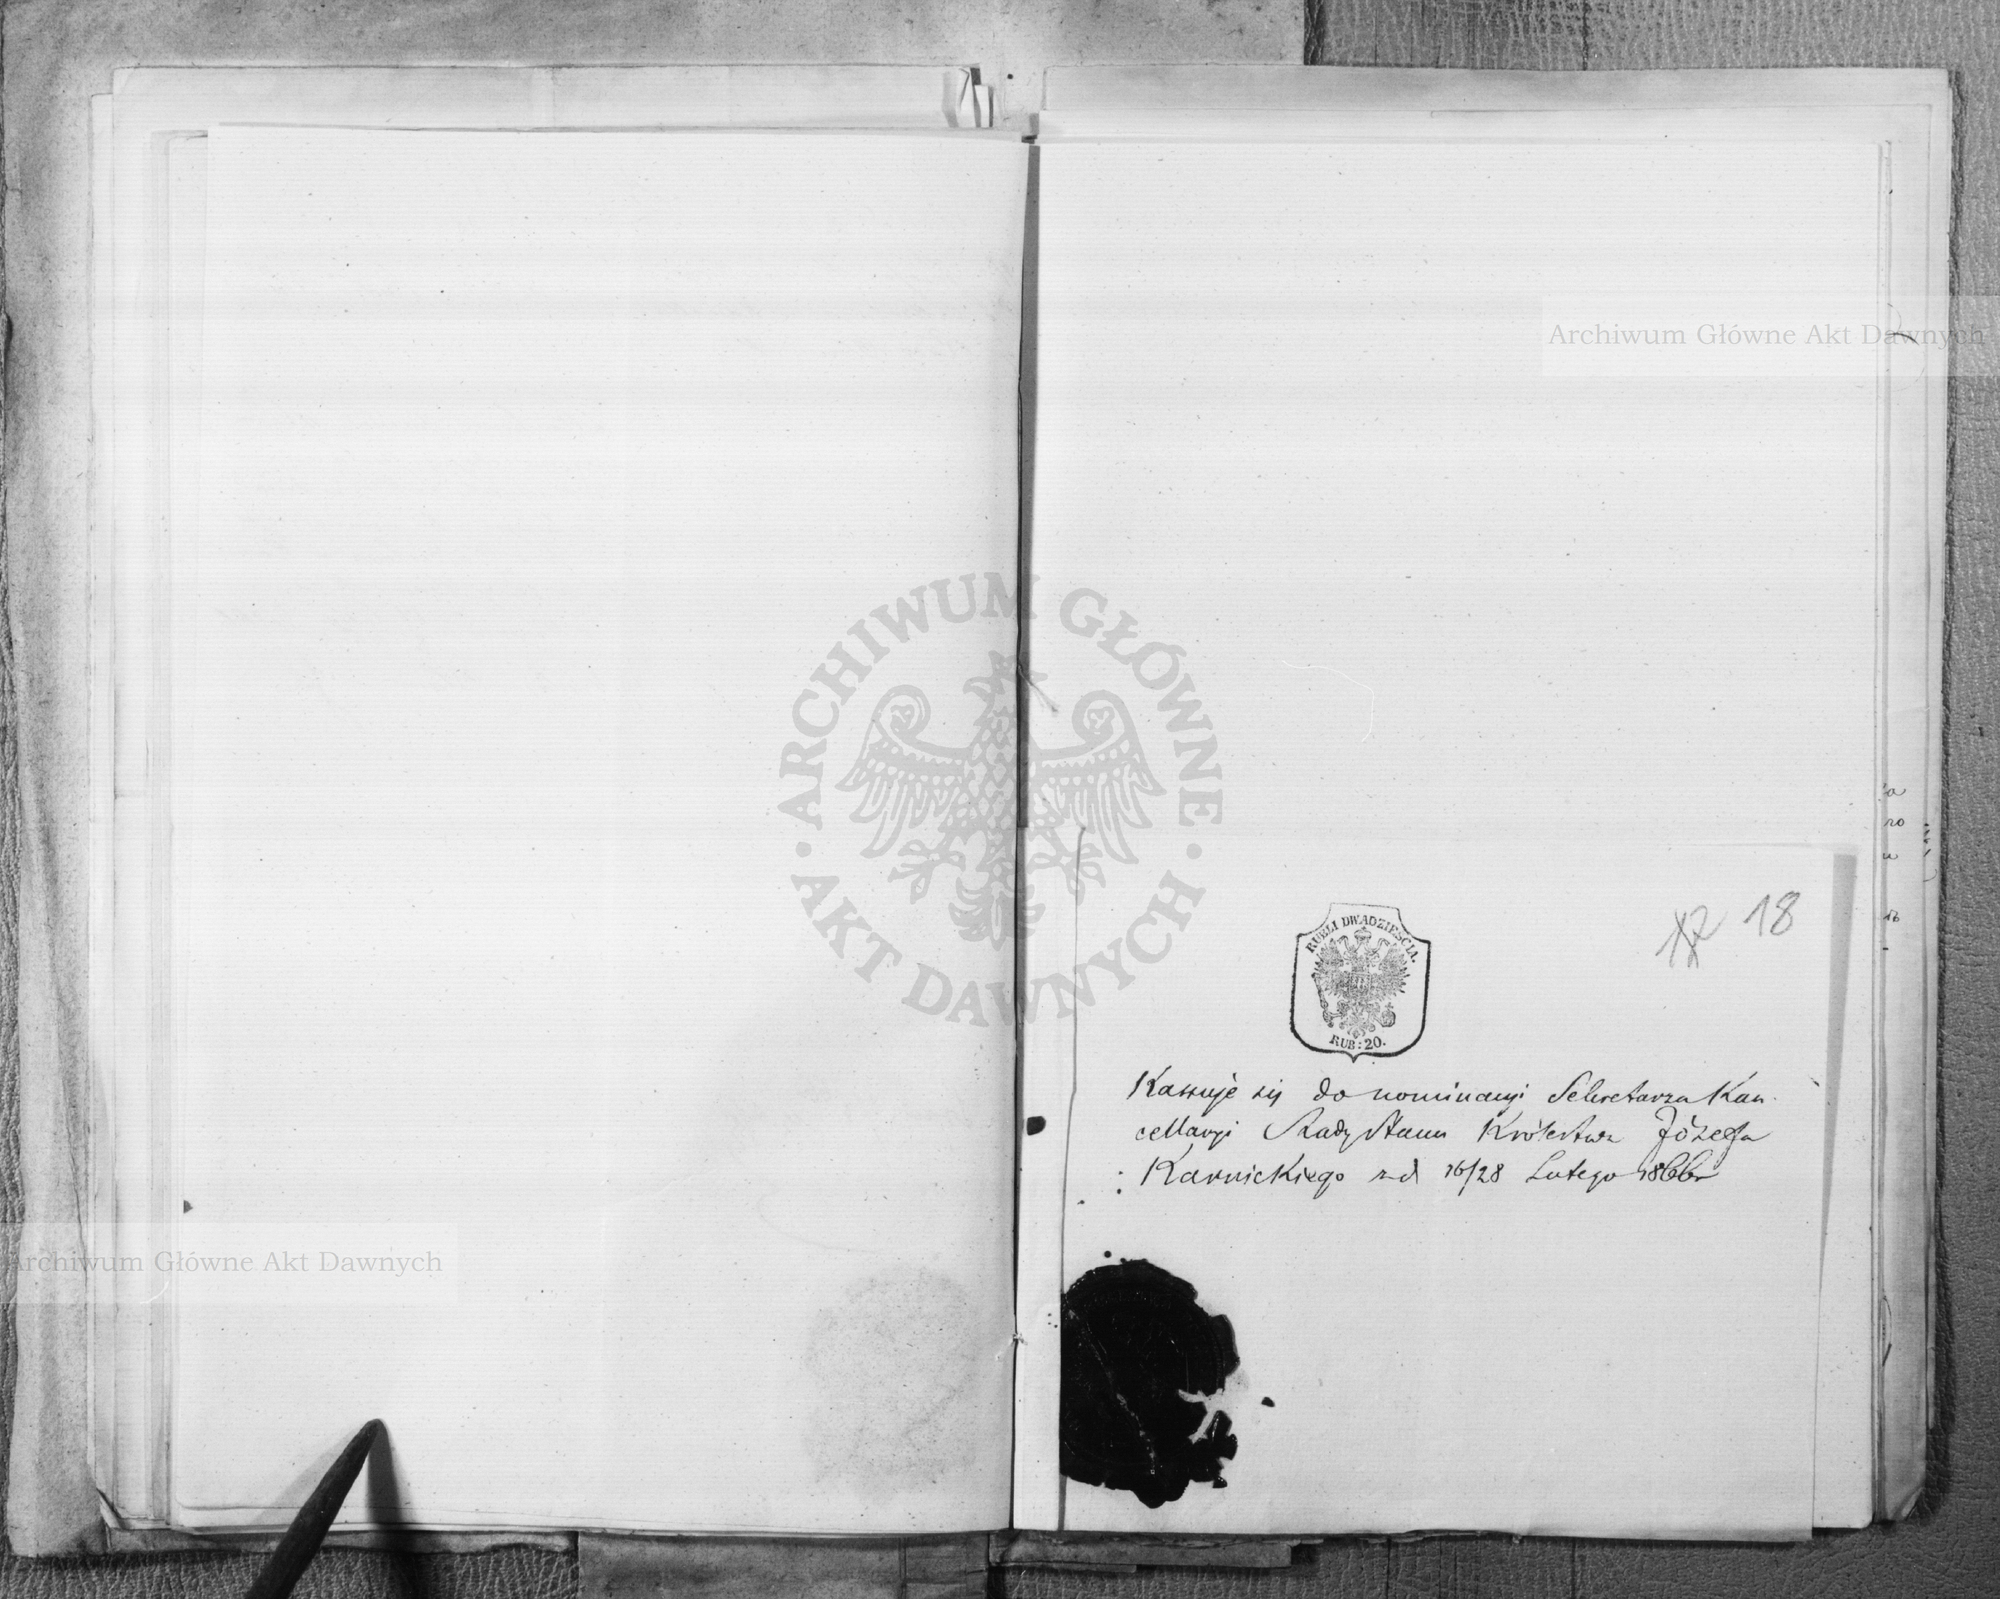 Archiwum Główne Akt Dawnych
ARCHIWUM GŁÓWNE
AKT DAWNYCH
18
RUBLI DWADZIEŚCIA.
RUB: 20.
Kassuje się do nominacyi Sekretarza Kan
cellaryi Rady Stanu Królestwa Józefa
Karnickiego z d 16/28 Lutego 1866r
Archiwum Główne Akt Dawnych